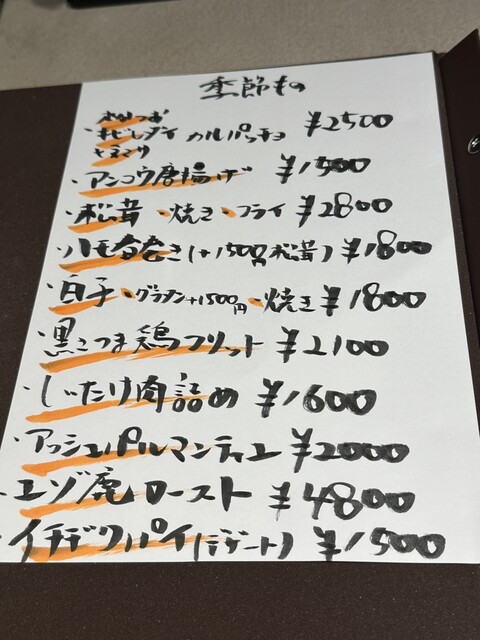 季節もの
カルパッチョ ¥2500
・アンコウ唐揚げ ¥1500
・松茸 ・焼き ・フライ ¥2800
・ハモ春巻き(+1500円松茸) ¥1800
・白子 ・グラタン+1500円 ・焼き ¥1800
・黒さつま鶏フリット ¥2100
・しいたけ肉詰め ¥1600
・アッシェパルマンティエ ¥2000
・エゾ鹿ロースト ¥4800
・イチヂクパイ(デザート) ¥1500